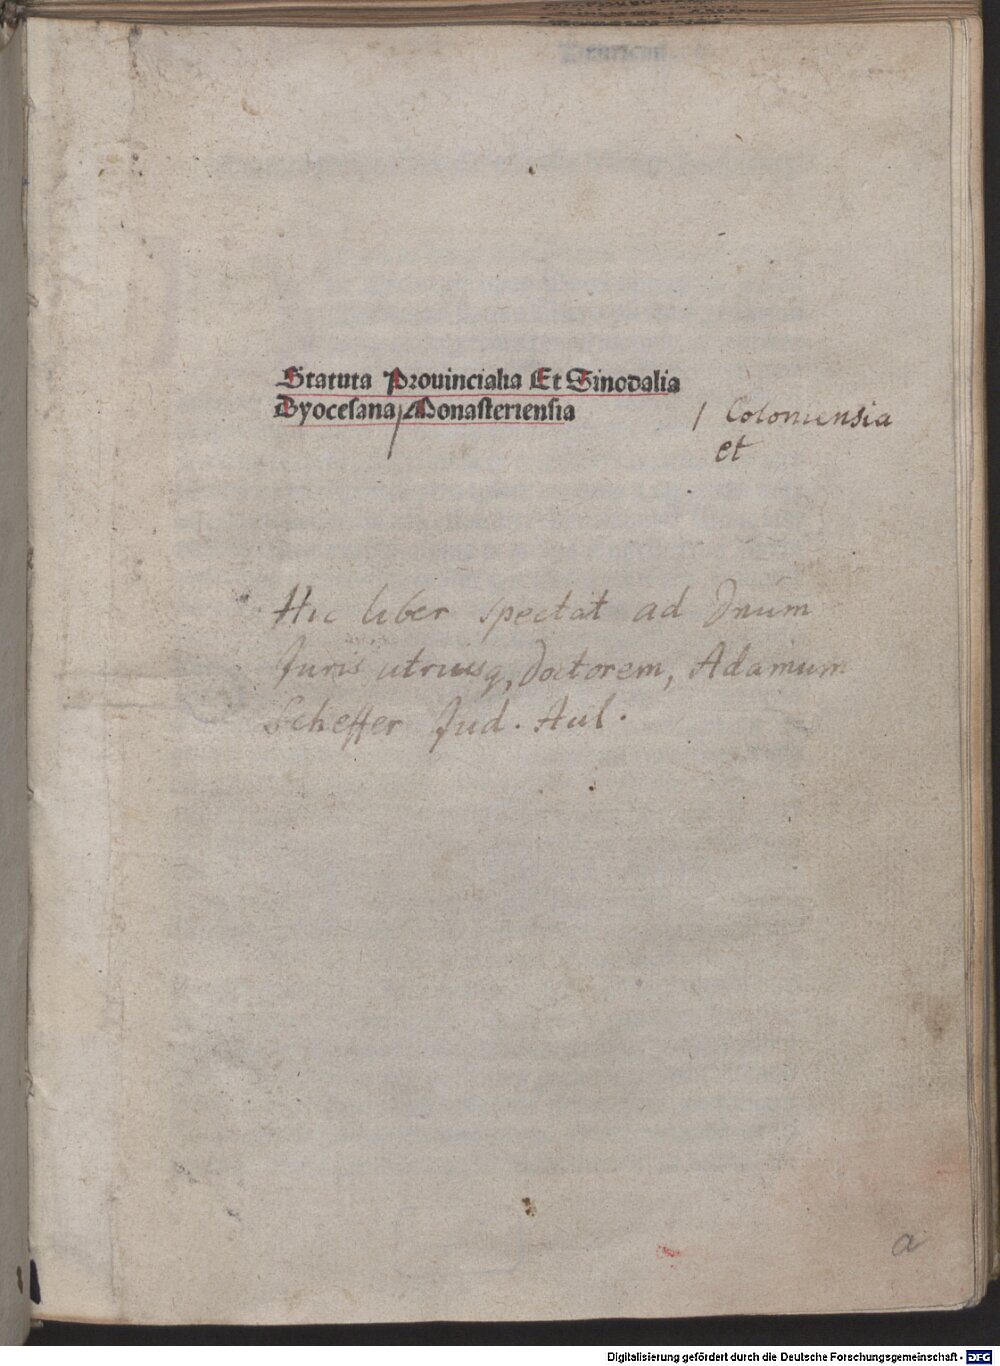 Statuta Prouincialia Et Sinodalia
Dyocesana Monasteriensia
/ Coloniensia
et
Hic liber spectat ad Dnum
Juris utriusq, Doctorem, Adamum
Scheffer Jud. Aul.
a
Digitalisierung gefördert durch die Deutsche Forschungsgemeinschaft - DFG